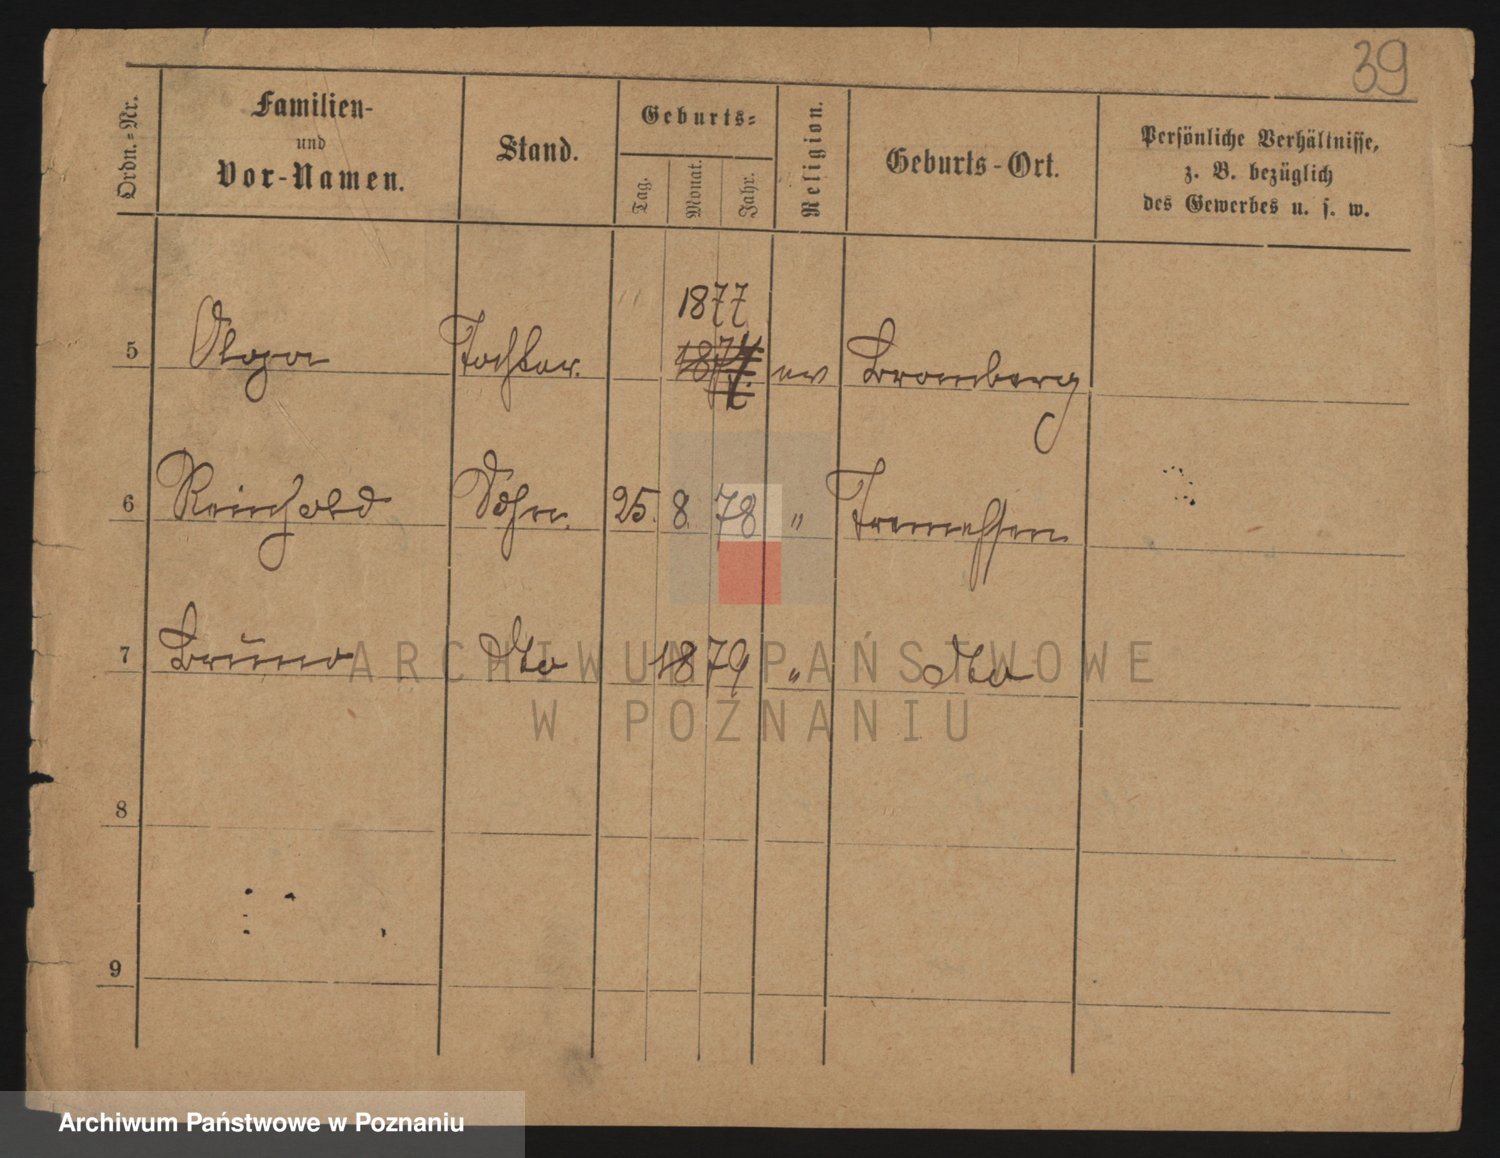 39
Ordn.-Nr.
Familien-
und
Vor-Namen.
Stand.
Geburts-
Tag.
Monat.
Jahr.
Religion.
Geburts-Ort.
Persönliche Verhältnisse,
z. B. bezüglich
des Gewerbes u. s. w.
1877
5 Olga Tochter. 1874 ev Bromberg
6 Reinhold Sohn. 25. 8. 78 " Tremessen
7 Bruno dto 1879 " dto
8
9
ARCHIWUM PAŃSTWOWE
W POZNANIU
Archiwum Państwowe w Poznaniu